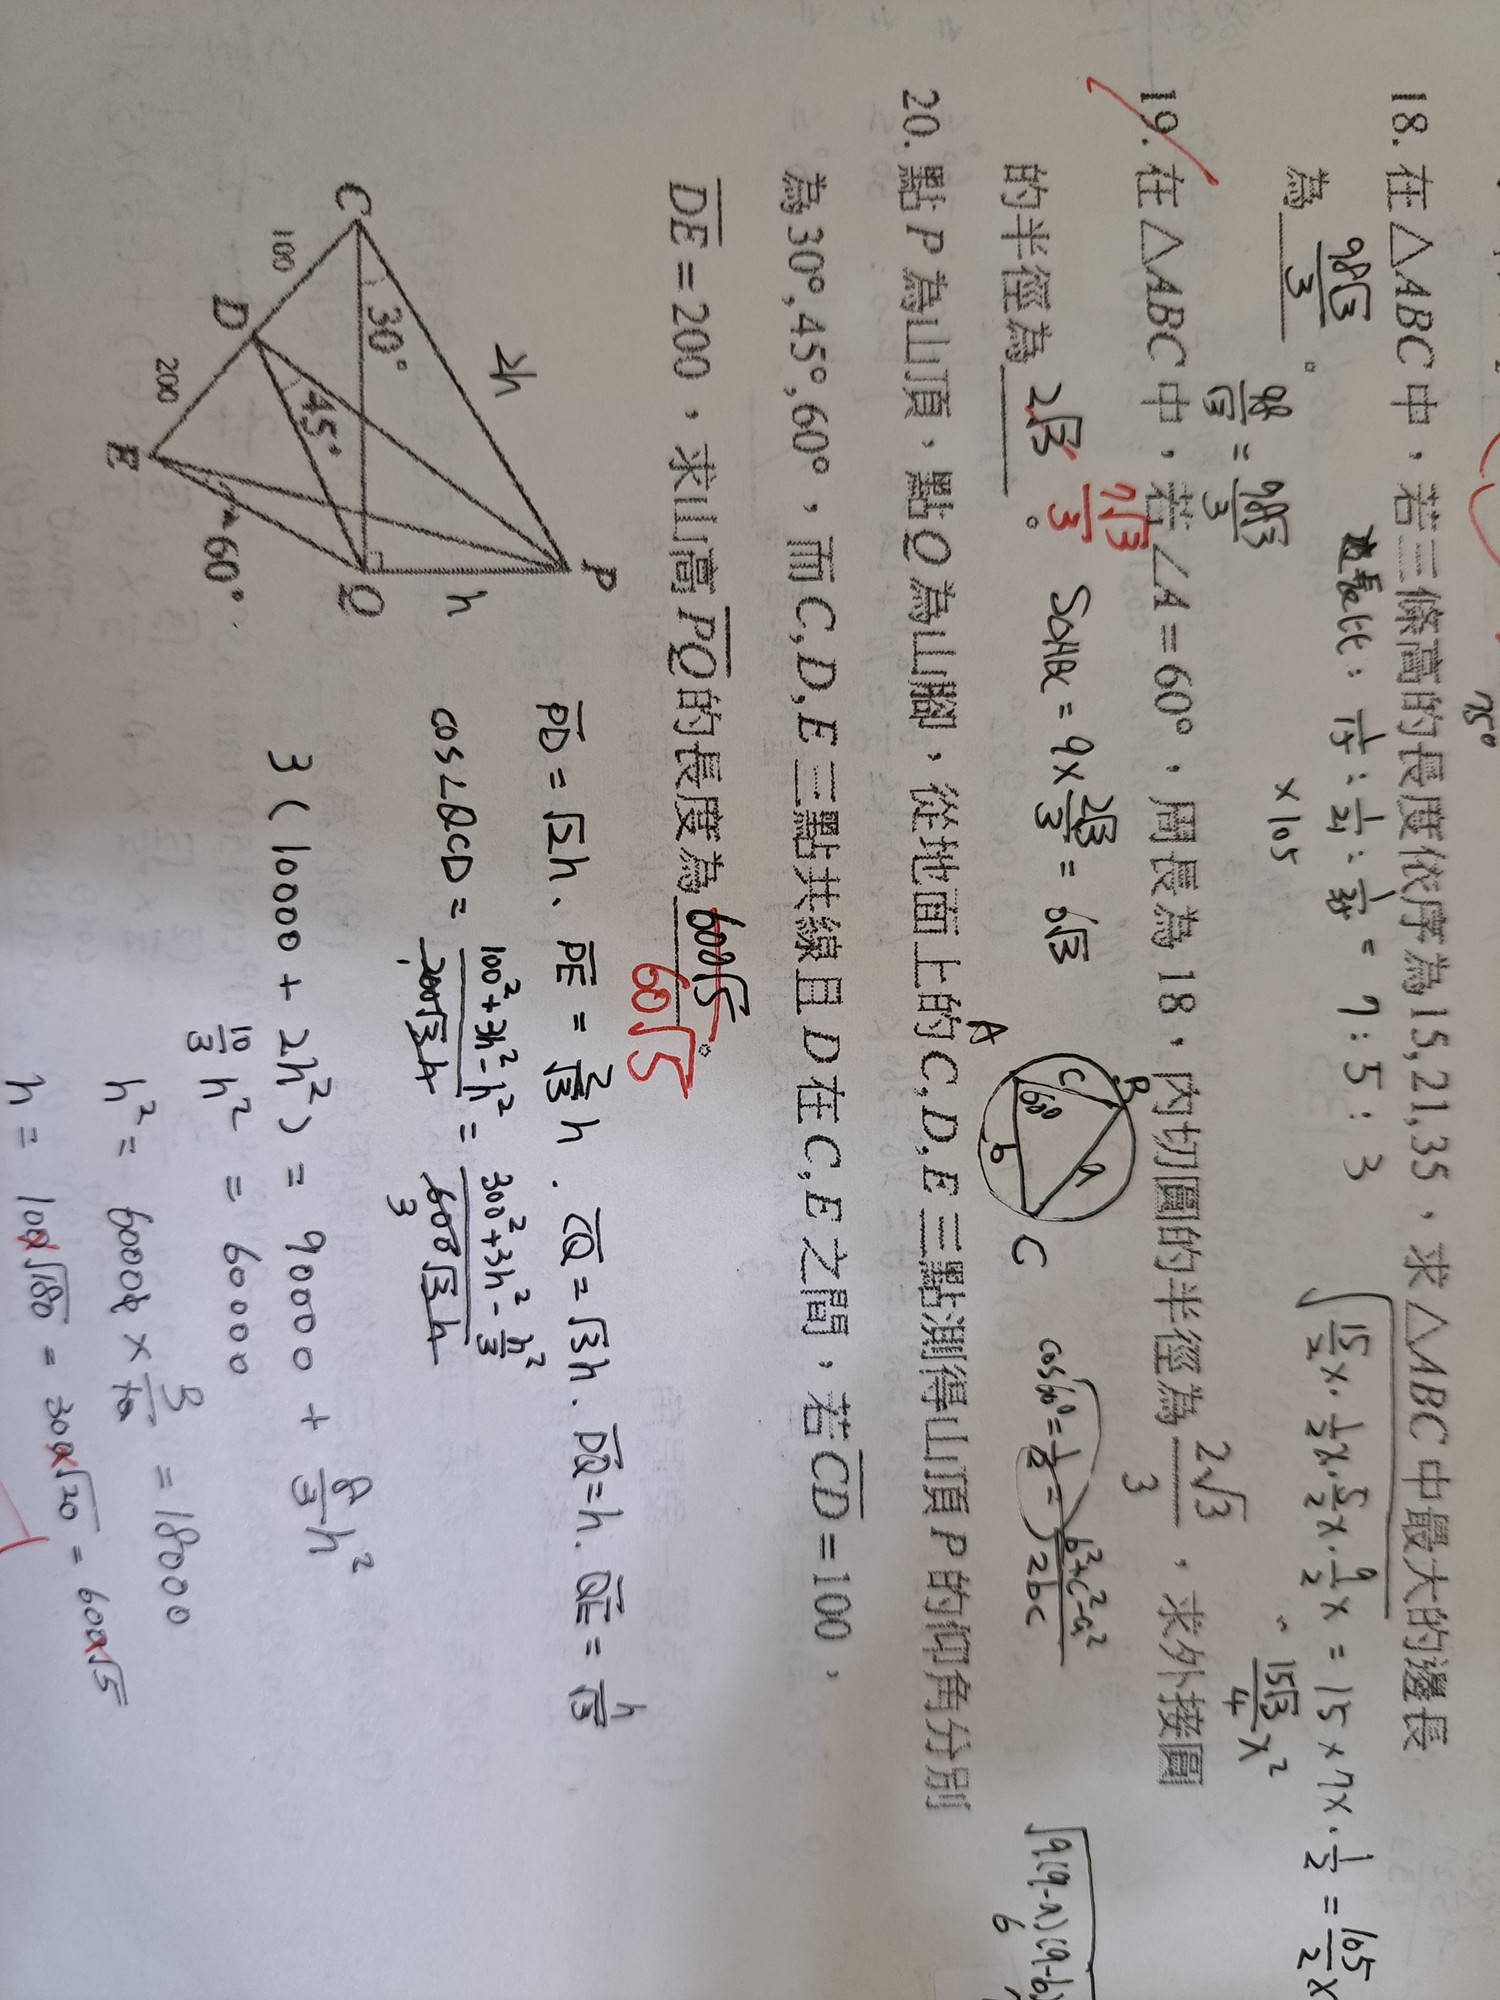 75°
18. 在△ABC中，若三條高的長度依序為15,21,35，求△ABC中最大的邊長
為 98√3/3 。
邊長比：1/15 : 1/21 : 1/35 = 7 : 5 : 3
×105
√(15/2 x · 1/2 x · 5/2 x · 9/2 x) = 15 × 7x · 1/2 = 105/2 x
" 15√3/4 x²
98/√3 = 98√3/3
19. 在△ABC中，若∠A=60°，周長為18，內切圓的半徑為 2√3/3 ，求外接圓
的半徑為 2√3 。
7√3/3
S△ABC = 9 × 2√3/3 = 6√3
A B C
60° c b a
cos60° = 1/2 = (b²+c²-a²)/2bc
20. 點P為山頂，點Q為山腳，從地面上的C,D,E三點測得山頂P的仰角分別
為30°,45°,60°，而C,D,E三點共線且D在C,E之間，若CD=100，
DE=200，求山高PQ的長度為 600√5 。
60√5
C 30° 2h P
100 D 45° h
200 E 60° Q
PD = √2h . PE = 2/√3 h . CQ = √3h . DQ = h . QE = h/√3
cos∠QCD = (100²+3h²-h²)/(200√3h) = (300²+3h²-h²/3)/(600√3h)
3
3(10000 + 2h²) = 90000 + 8/3 h²
10/3 h² = 60000
h² = 60000 × 3/10 = 18000
h = 100√180 = 300√20 = 600√5